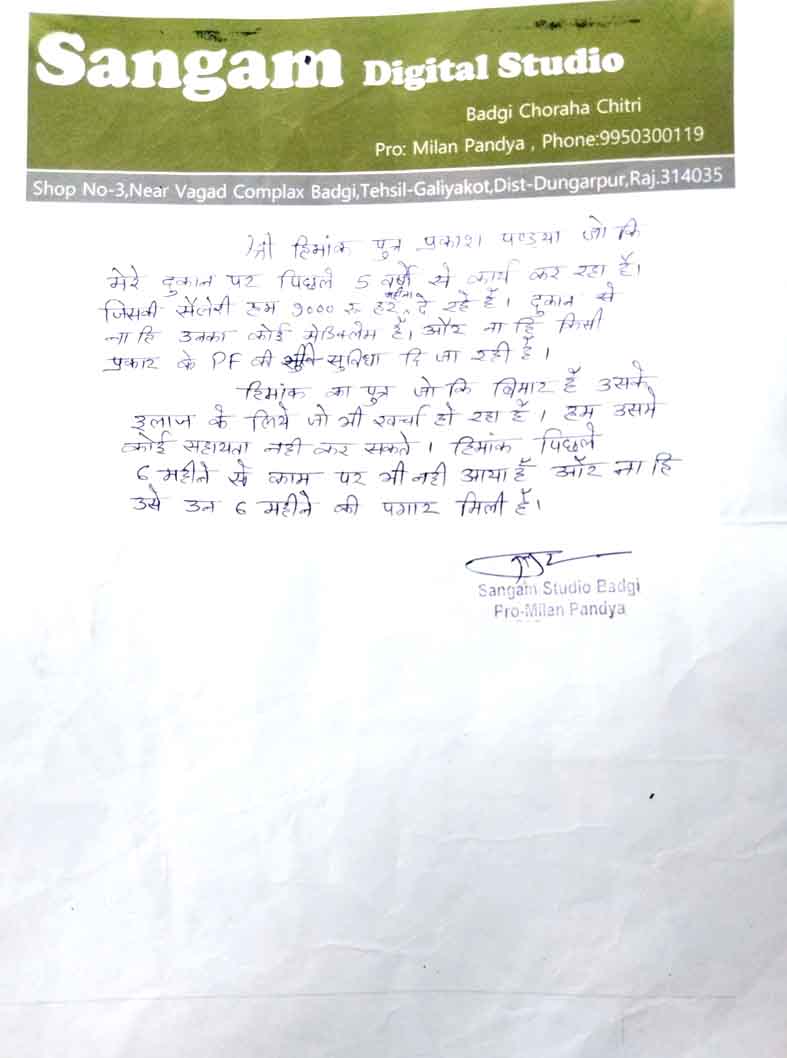 Sangam Digital Studio
Badgi Choraha Chitri
Pro: Milan Pandya , Phone:9950300119
Shop No-3,Near Vagad Complax Badgi,Tehsil-Galiyakot,Dist-Dungarpur,Raj.314035
श्री हिमांक पुत्र प्रकाश पण्डया जो कि
मेरे दुकान पर पिछले 5 वर्षो से कार्य कर रहा हैं।
जिसकी सेंलेरी हम 9000 रू हर महीना दे रहे हैं। दुकान से
ना हि उनका कोई मेडिक्लेम हैं। और ना हि किसी
प्रकार के PF की सुविधा दि जा रही हैं।
हिमांक का पुत्र जो कि बिमार हैं उसके
इलाज के लिये जो भी खर्चा हो रहा हैं। हम उसमे
कोई सहायता नही कर सकते। हिमांक पिछले
6 महीने से काम पर भी नही आया हैं और ना हि
उसे उन 6 महीने की पगार मिली हैं।
Sangam Studio Badgi
Pro-Milan Pandya